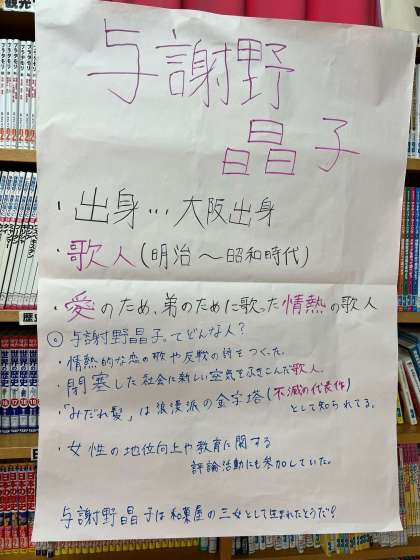 与謝野
晶子
・出身…大阪出身
・歌人(明治～昭和時代)
・愛のため、弟のために歌った情熱の歌人
◎与謝野晶子ってどんな人?
・情熱的な恋の歌や反戦の詩をつくった。
・閉塞した社会に新しい空気をふきこんだ歌人。
・「みだれ髪」は浪漫派の金字塔(不滅の代表作)
として知られてる。
・女性の地位向上や教育に関する
評論活動にも参加していた。
与謝野晶子は和菓屋の三女として生まれたそうだ!